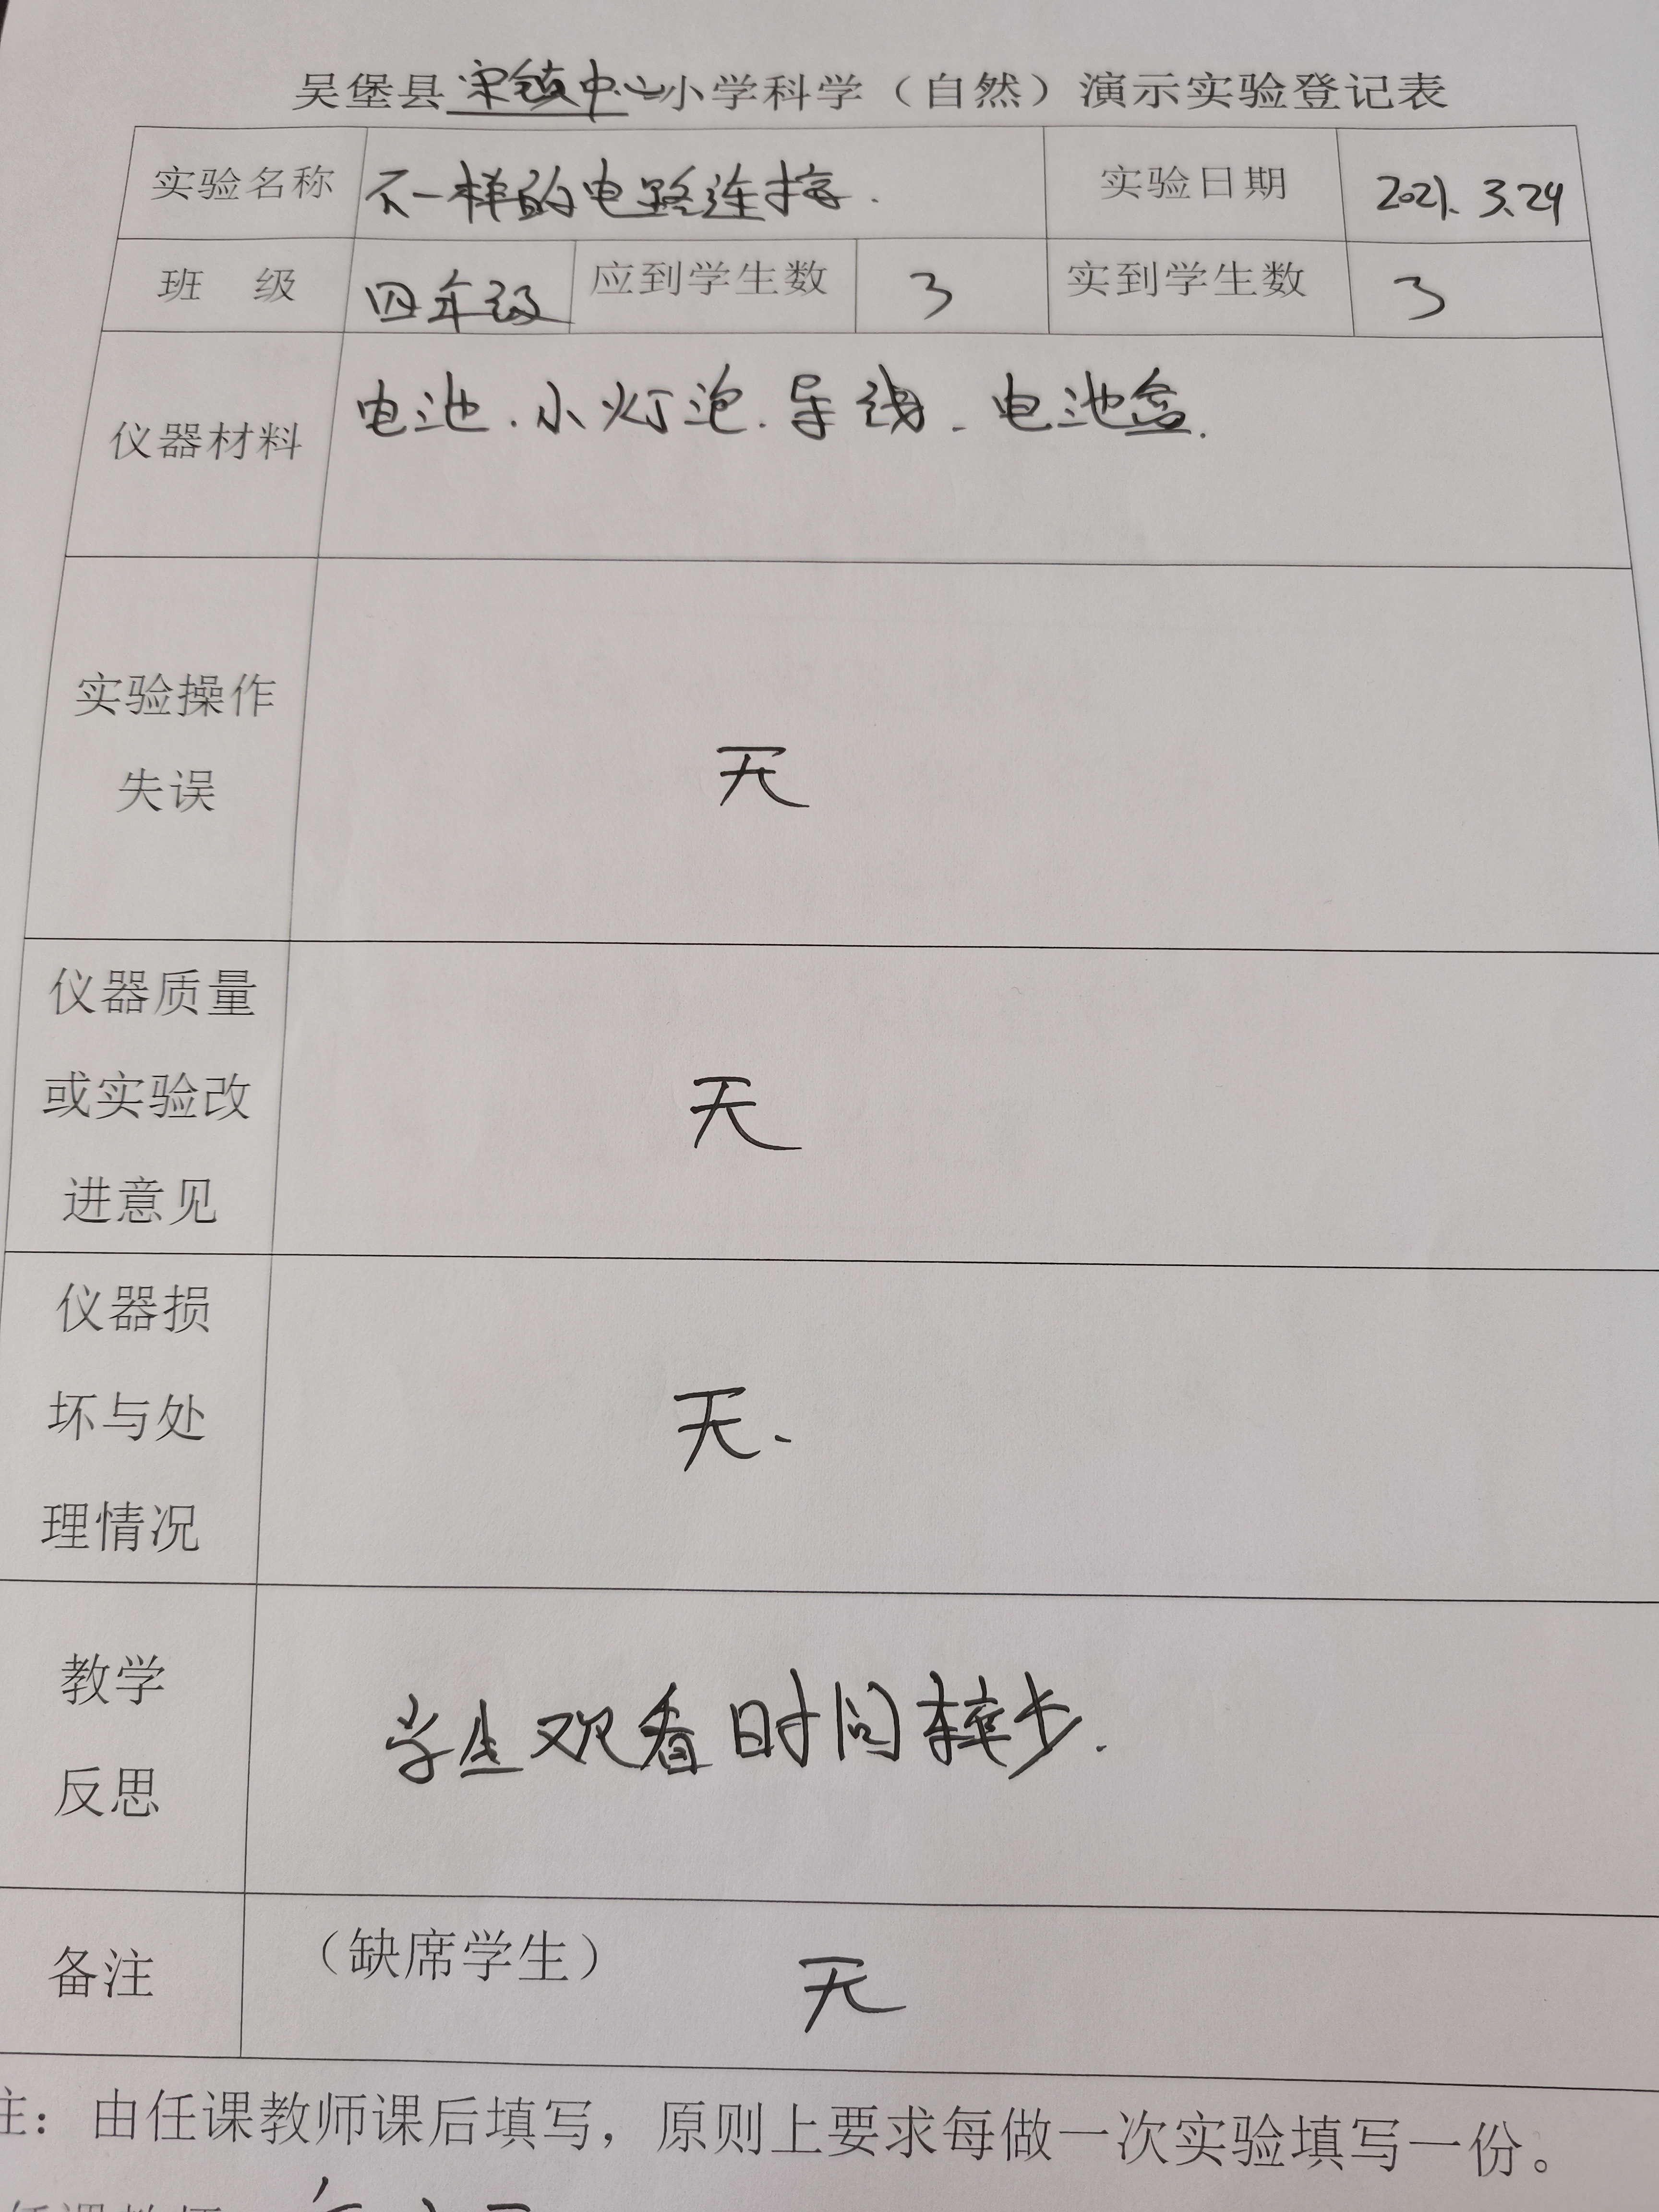 吴堡县宋镇中心小学科学（自然）演示实验登记表
实验名称 不一样的电路连接. 实验日期 2021.3.24
班 级 四年级 应到学生数 3 实到学生数 3
仪器材料 电池.小灯泡.导线.电池盒.
实验操作
失误
无
仪器质量
或实验改
进意见
无
仪器损
坏与处
理情况
无.
教学
反思
学生观看时间较少.
备注 （缺席学生） 无
注：由任课教师课后填写，原则上要求每做一次实验填写一份。
任课教师